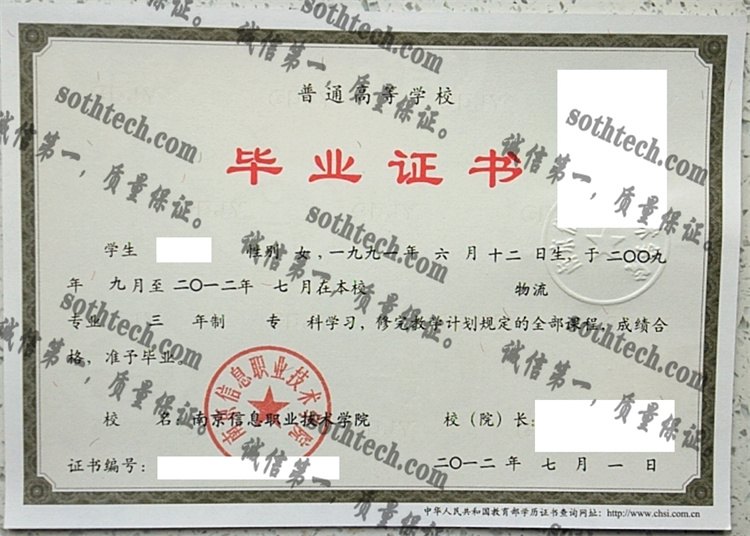 普通高等学校
毕业证书
学生 性别 女，一九九一年 六 月 十二 日生，于 二〇〇九
年 九月至 二〇一二年 七 月在本校 物流
专业 三 年制 专 科学习，修完教学计划规定的全部课程，成绩合
格，准予毕业。
校 名：南京信息职业技术学院 校（院）长：
证书编号： 二〇一二 年 七 月 一 日
南京信息职业技术学院
中华人民共和国教育部学历证书查询网址：http://www.chsi.com.cn
sothtech.com
诚信第一，质量保证。
sothtech.com
诚信第一，质量保证。
sothtech.com
诚信第一，质量保证。
sothtech.com
诚信第一，质量保证。
sothtech.com
诚信第一，质量保证。
sothtech.com
诚信第一，质量保证。